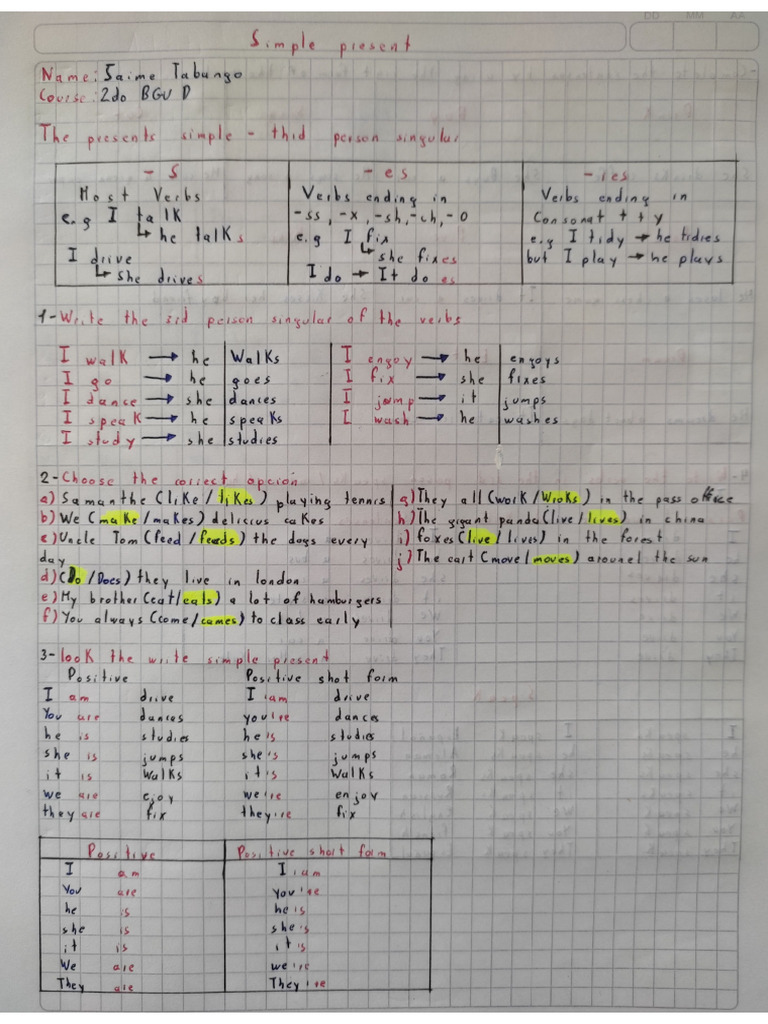 DD MM AA
Simple present
Name: Jaime Tabango
Course: 2do BGU D
The presents simple - thid person singular
- S
Most Verbs
e.g I talk
he talks
I drive
she drives
- es
Verbs ending in
-ss, -x, -sh, -ch, -o
e.g. I fix
she fixes
I do → It does
- ies
Verbs ending in
Consonat + + y
e.g I tidy → he tidies
but I play → he plays
1- Write the 3rd person singular of the verbs
I walk → he Walks
I go → he goes
I dance → she dances
I speak → he speaks
I study → she studies
I engoy → he engoys
I fix → she fixes
I jump → it jumps
I wash → he washes
2- Choose the correct opcion
a) Samanthe (like / likes) playing tennis
b) We (make / makes) delicius cakes
c) Uncle Tom (feed / feeds) the dogs every
day
d) (Do / Does) they live in london
e) My brother (eat / eats) a lot of hamburgers
f) You always (come / comes) to class early
g) They all (work / Works) in the pass office
h) The gigant panda (live / lives) in china
i) foxes (live / lives) in the forest
j) The eart (move / moves) arounel the sun
3- look the write simple present
Positive Positive shot form
I am drive I am drive
You are dances you're dances
he is studies he is studies
she is jumps she's jumps
it is Walks it's Walks
we are ejoy we're enjoy
they are fix they're fix
Positive Positive short form
I am I am
You are You're
he is he is
she is she's
it is it's
We are we're
They are They're